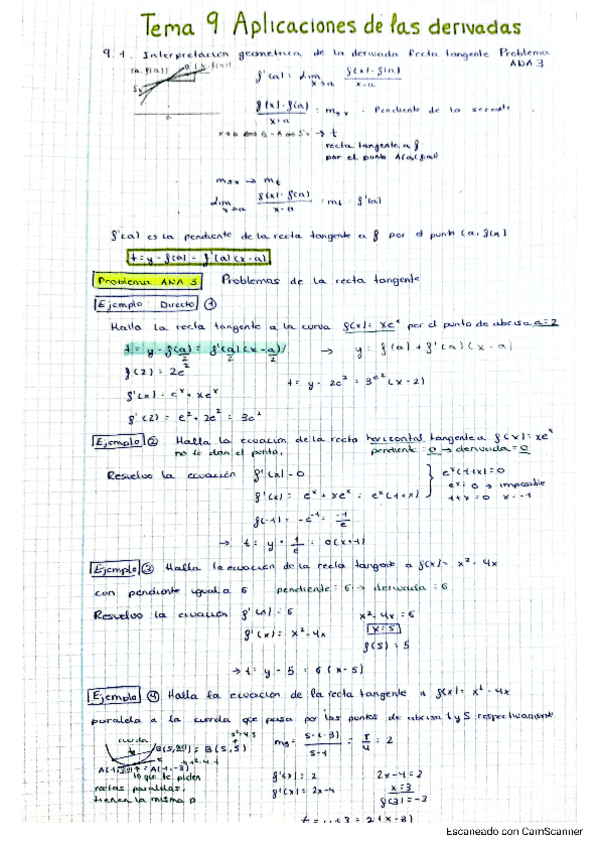 Tema 9 Aplicaciones de las derivadas
9.1. Interpretación geométrica de la derivada Recta tangente Problema ANA 3
(a, f(a))
f'(a) = lim x→a f(x)-f(a) / x-a
f(x)-f(a) / x-a = msx = Pendiente de la secante
→ t
recta tangente a f
por el punto A(a, f(a))
msx → mt
lim x→a f(x)-f(a) / x-a = mt = f'(a)
f'(a) es la pendiente de la recta tangente a f por el punto (a, f(a)
t = y - f(a) = f'(a)(x-a)
Problema ANA 3 Problemas de la recta tangente
Ejemplo: Directo ①
Halla la recta tangente a la curva f(x)= xe^x por el punto de abcisa a=2
t = y - f(a) = f'(a)(x-a) → y = f(a) + f'(a)(x-a)
2 2 2
f(2) = 2e^2
t = y - 2e^2 = 3e^2(x-2)
f'(x) = e^x + xe^x
f'(2) = e^2 + 2e^2 = 3e^2
Ejemplo ② Halla la ecuación de la recta horizontal tangente a f(x)= xe^x
no te dan el punto. pendiente: 0 → derivada = 0
Resuelvo la ecuación f'(x) = 0
e^x(1+x)=0
f'(x) = e^x + xe^x = e^x(1+x)
e^x = 0 → imposible
1+x = 0 x = -1
f(-1) = -e^-1 = -1/e
→ t = y + 1/e = 0(x+1)
Ejemplo ③ Halla la ecuación de la recta tangente a f(x)= x² - 4x
con pendiente igual a 6 pendiente = 6 → derivada = 6
Resuelvo la ecuación f'(x) = 6 x²-4x = 6
f'(x) = x²-4x x=5
f(5) = 5
→ t = y - 5 = 6(x-5)
Ejemplo ④ Halla la ecuación de la recta tangente a f(x)= x² - 4x
paralela a la cuerda que pasa por los puntos de abcisa 1 y 5 respectivamente
cuerda
B(5,5)
ms = 5-(-3) / 5-1 = = 2
A(1,-3)
lo que te piden
rectas paralelas,
tienen la misma p
f'(x) = 2 2x-4 = 2
f'(x) = 2x-4 x=3
f(3) = -3
t = y+3 = 2(x-3)
Escaneado con CamScanner